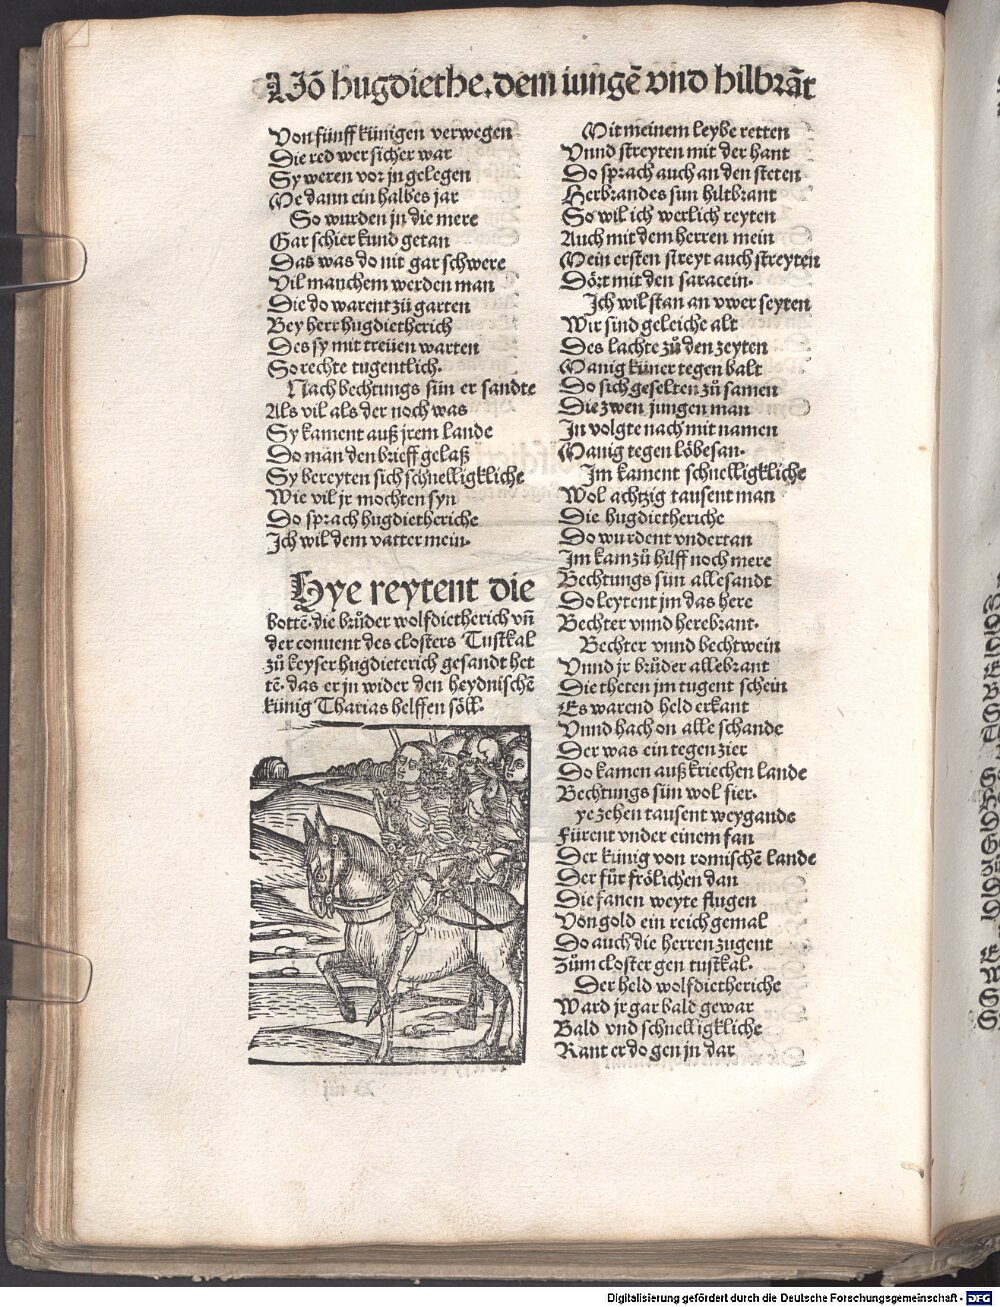 Uõ hugdiethe. dem iungẽ vnd hilbrãt
Von fünff künigen verwegen
Die red wer sicher war
Sy weren vor jn gelegen
Me dann ein halbes jar
So wurden jn die mere
Gar schier kund getan
Das was do nit gar schwere
Vil manchem werden man
Die do warent zů garten
Bey herr hugdietherich
Des sy mit treüen warten
So rechte tugentlich.
Nach bechtungs sün er sandte
Als vil als der noch was
Sy kament auß jrem lande
Do man den brieff gelaß
Sy bereyten sich schnelligkliche
Wie vil jr mochten syn
Do sprach hugdietheriche
Ich wil dem vatter mein.
Hye reytent die
bottẽ. die brůder wolfdietherich vñ
der conuent des closters Tustkal
zů keyser hugdieterich gesandt het
tẽ. das er jn wider den heydnischẽ
künig Tharias helffen söll.
Mit meinem leybe retten
Vnnd streyten mit der hant
Do sprach auch an den steten
Herbrandes sun hiltbrant
So wil ich werlich reyten
Auch mit dem herren mein
Mein ersten streyt auch streyten
Dört mit den saracein.
Ich wil stan an vwer seyten
Wir sind geleiche alt
Des lachte zů den zeyten
Manig küner tegen balt
Do sich geselten zů samen
Die zwen jungen man
In volgte nach mit namen
Manig tegen löbesan.
Im kament schnelligkliche
Wol achtzig tausent man
Die hugdietheriche
Do wurdent vndertan
Im kam zů hilff noch mere
Bechtungs sün alle sandt
Do leytent jm das here
Bechter vnnd herebrant.
Bechter vnnd bechtwein
Vnnd jr brůder allebrant
Die theten jm tugent schein
Es warend held erkant
Vnnd hach on alle schande
Der was ein tegen zier
Do kamen auß kriechen lande
Bechtungs sün wol fier.
ye zehen tausent weygande
Fürent vnder einem fan
Der künig von romischẽ lande
Der für frölichen dan
Die fanen weyte flugen
Von gold ein reich gemal
Do auch die herren zugent
Zům closter gen tustkal.
Der held wolfdietheriche
Ward jr gar bald gewar
Bald vnd schnelligkliche
Rant er do gen jn dar
Digitalisierung gefördert durch die Deutsche Forschungsgemeinschaft - DFG